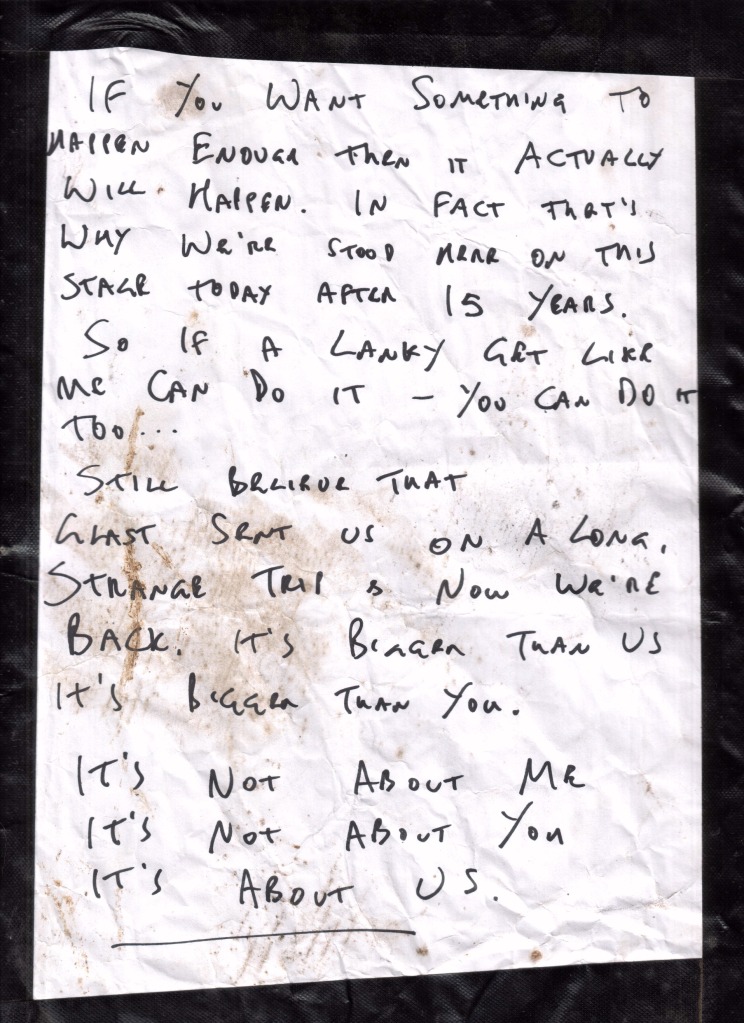 IF YOU WANT SOMETHING TO
HAPPEN ENOUGH THEN IT ACTUALLY
WILL HAPPEN. IN FACT THAT'S
WHY WE'RE STOOD HERE ON THIS
STAGE TODAY AFTER 15 YEARS.
SO IF A LANKY GET LIKE
ME CAN DO IT – YOU CAN DO IT
TOO...
STILL BELIEVE THAT
GLAST SENT US ON A LONG,
STRANGE TRIP & NOW WE'RE
BACK. IT'S BIGGER THAN US
IT'S BIGGER THAN YOU.
IT'S NOT ABOUT ME
IT'S NOT ABOUT YOU
IT'S ABOUT US.